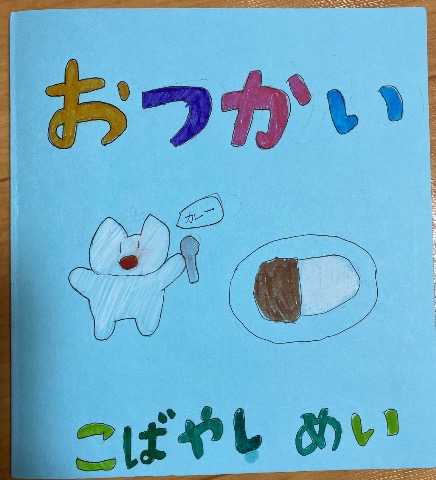 おつかい
カレー
こばやし めい